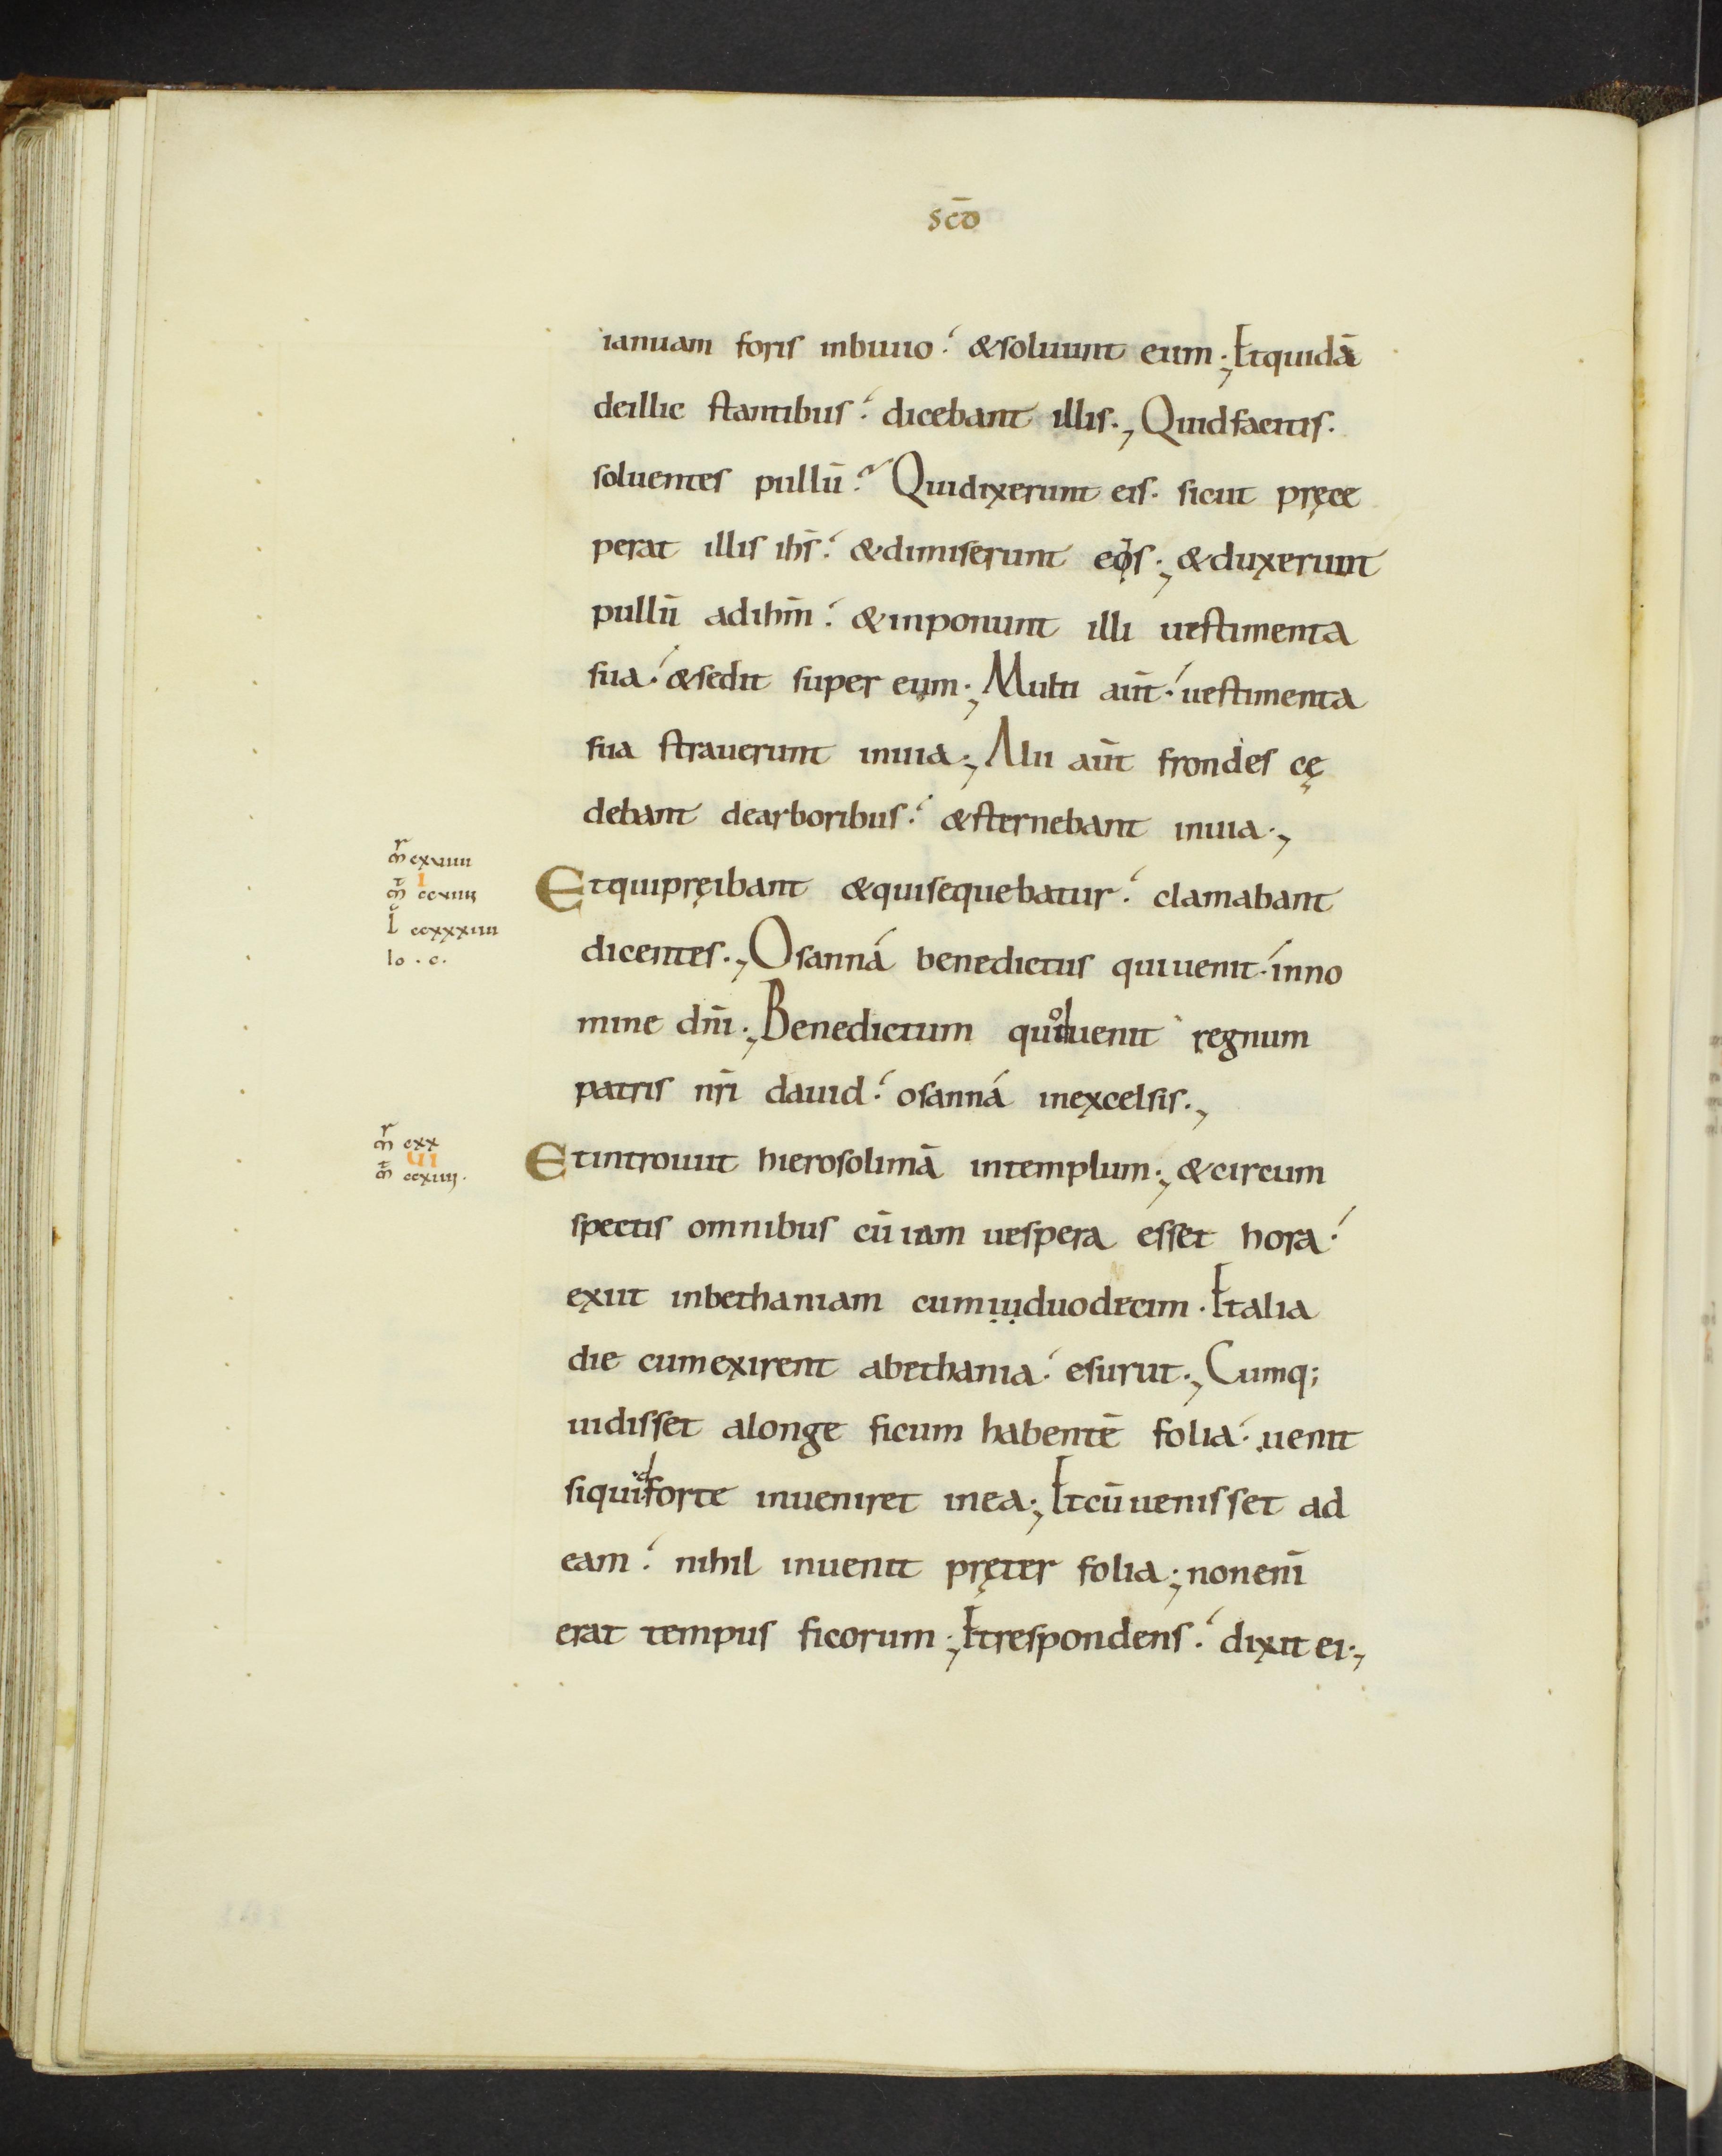 scō
ianuam foris inbiuio & soluunt eum; Etquidā
deillic stantibus dicebant illis., Quidfacitis.
soluentes pullū? Quidixerunt eis. sicut pręce
perat illis ihs̄ & dimiserunt eos; & duxerunt
pullū adihm̄ & inponunt illi uestimenta
sua & sedit super eum; Multi aūt uestimenta
sua strauerunt inuia; Alii aūt frondes cę
debant dearboribus & sternebant inuia.,
mr̄ cxviiii
I
mt̄ ccxiiii
l ccxxxiiii
Io . c.
Etquipręibant & quisequebatur clamabant
dicentes., Osanná benedictus quiuenit inno
mine dn̄i; Benedictum quoduenit regnum
patris nr̄i dauid osanná inexcelsis.,
mr̄ cxx
VI
mt̄ ccxiiii.
Etintrouit hierosolimā intemplum; & circum
spectis omnibus cū iam uespera esset hora
exiit inbethaniam cumiiiduodecim. Etalia
die cumexirent abethania esuriit., Cumq;
uidisset alonge ficum habentē folia uenit
siquidforte inueniret inea; Etcūuenisset ad
eam nihil inuenit pręter folia; nonenī
erat tempus ficorum; Etrespondens dixit ei.,